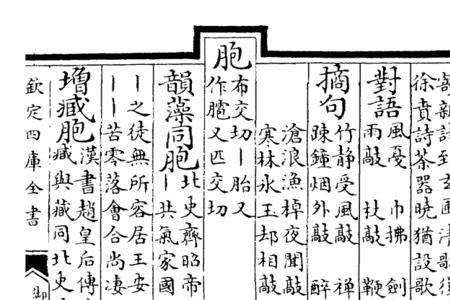 徐賁詩茶器曉猶設歌
對語風戞 巾拂 劍
雨敲 扙敲 鞭
摘句竹静受風敲 禪
踈鐘烟外敲 醉
滄浪漁棹夜聞敲
寒林氷玉却相敲
胞
布交切丨胎又
作 又匹交切
韻藻同胞北史齊昭帝
丨共氣家國
丨之徒無所容居王安
丨丨苦零落會合尚凄
增臧胞漢書趙皇后傳
臧與藏同北史
欽定四庫全書
御